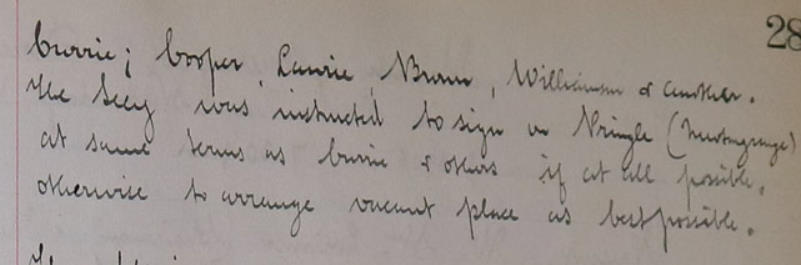 28
Currie; Cooper, Laurie, Brown, Williamson & another.
The Secy was instructed to sign on Pringle (Newtongrange)
at same terms as Currie & others if at all possible,
otherwise to arrange vacant place as best possible.